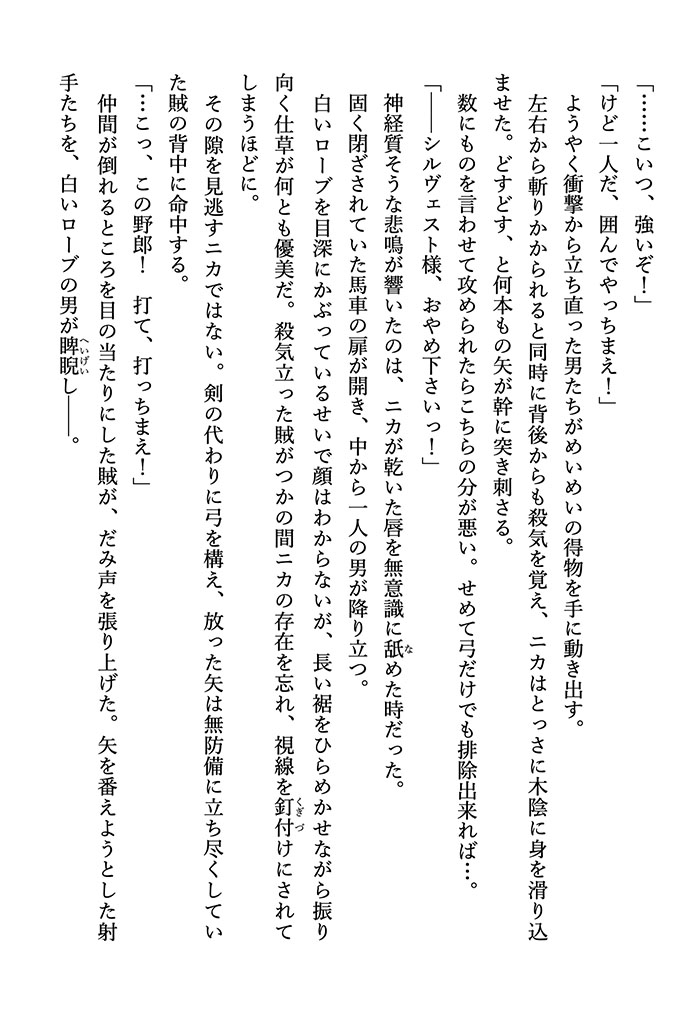 「……こいつ、強いぞ！」
「けど一人だ、囲んでやっちまえ！」
ようやく衝撃から立ち直った男たちがめいめいの得物を手に動き出す。
左右から斬りかかられると同時に背後からも殺気を覚え、ニカはとっさに木陰に身を滑り込
ませた。どすどす、と何本もの矢が幹に突き刺さる。
数にものを言わせて攻められたらこちらの分が悪い。せめて弓だけでも排除出来れば…。
「――シルヴェスト様、おやめ下さいっ！」
神経質そうな悲鳴が響いたのは、ニカが乾いた唇を無意識に舐めた時だった。
固く閉ざされていた馬車の扉が開き、中から一人の男が降り立つ。
白いローブを目深にかぶっているせいで顔はわからないが、長い裾をひらめかせながら振り
向く仕草が何とも優美だ。殺気立った賊がつかの間ニカの存在を忘れ、視線を釘付けにされて
しまうほどに。
その隙を見逃すニカではない。剣の代わりに弓を構え、放った矢は無防備に立ち尽くしてい
た賊の背中に命中する。
「…こっ、この野郎！　打て、打っちまえ！」
仲間が倒れるところを目の当たりにした賊が、だみ声を張り上げた。矢を番えようとした射
手たちを、白いローブの男が睥睨し――。